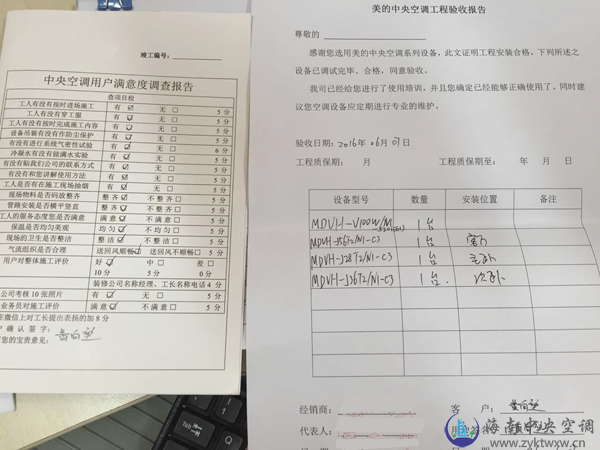 竣工编号:
中央空调用户满意度调查报告
查项目检
工人有没有按时进场施工 有 ☑ 没 □ 5 分
工人有没有穿工服 有 ☑ 没 □ 5 分
工人有没有按时完成施工内容 有 ☑ 没 □ 5 分
设备吊装有没有作防尘保护 有 ☑ 没 □ 5 分
有没有进行系统气密性试验 有 ☑ 没 □ 6 分
冷凝水有没有做满水实验 有 ☑ 没 □ 5 分
有没有贴我们公司的联系方式 有 ☑ 没 □ 5 分
有没有和您讲解使用方法 有 ☑ 没 □ 5 分
工人是否有在施工现场抽烟 有 没 5 分
现场物料是否码放整齐 整 齐 ☑ 不 整 齐 □ 5 分
管路安装是否横平竖直 整 齐 ☑ 不 整 齐 □ 5 分
工人的服务态度您是否满意 满 意 ☑ 不 满 意 □ 5 分
保温是否均匀美观 均 匀 ☑ 不 均 匀 □ 5 分
现场的卫生是否整洁 整 洁 ☑ 不 整 洁 □ 5 分
气流组织是否合理 送回风顺畅 ☑ 送回风不顺畅 □ 5 分
用户对整体施工评价 好 ☑ 中 □ 差 □
10 分 5 分 0 分
装修公司名称经理、工长名称电话 4 分
公司考核 10 张照片 有 ☑ 没 □ 5 分
业务员对施工评价 满 意 ☑ 不 满 意 □ 5 分
在微信上对工长提出表扬的加 8 分
户 确 认 签 字:
您的宝贵意见:
美的中央空调工程验收报告
尊敬的
感谢您选用美的中央空调系列设备,此文证明工程安装合格,下列所述之
设备已调试完毕、合格,同意验收。
我司已经给您进行了使用培训,并且您确定已经能够正确使用了,同时建
议您空调设备应定期进行专业的维护。
验收日期: 2016年 06月 07日
工程质保期: 月 工程质保期至: 年 月 日
设备型号 数量 安装位置 备注
MDVH-V100W/N1 1台
MDVH-J56T2/N1-C3 1台
MDVH-J28T2/N1-C3 1台
MDVH-J36T2/N1-C3 1台
经销商: 客 户:
代表人:
海南中央空调
www.zyktwxw.cn